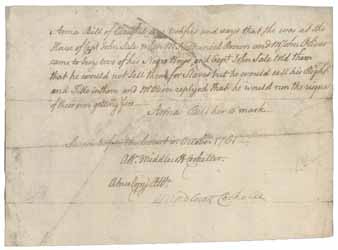 Anna Bill of Lawfull age testifies and says that she was at the
House of Capt John Sale when Mr Nathaniel Brown and Mr John Oliver
came to buy two of his Negro Boys, and Capt John Sale told them
that he would not Sell them for Slaves but he would sell his Right
and Title in them and Mr Brown replyed that he would run the risque
of their ever getting free
Anna Bill her mark
Sworn before the Court in October 1761
Attr Middlecott Cooke Cler
A true Copy Attr
Middlecott Cooke Cler